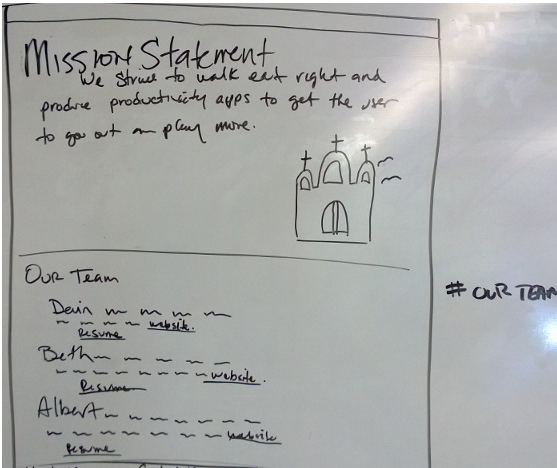 Mission Statement
We strive to walk eat right and
produce productivity apps to get the user
to go out an play more.
Our Team
# OUR TEAM
Devin
website.
Resume
Beth
website.
Resume
Albert
website
Resume